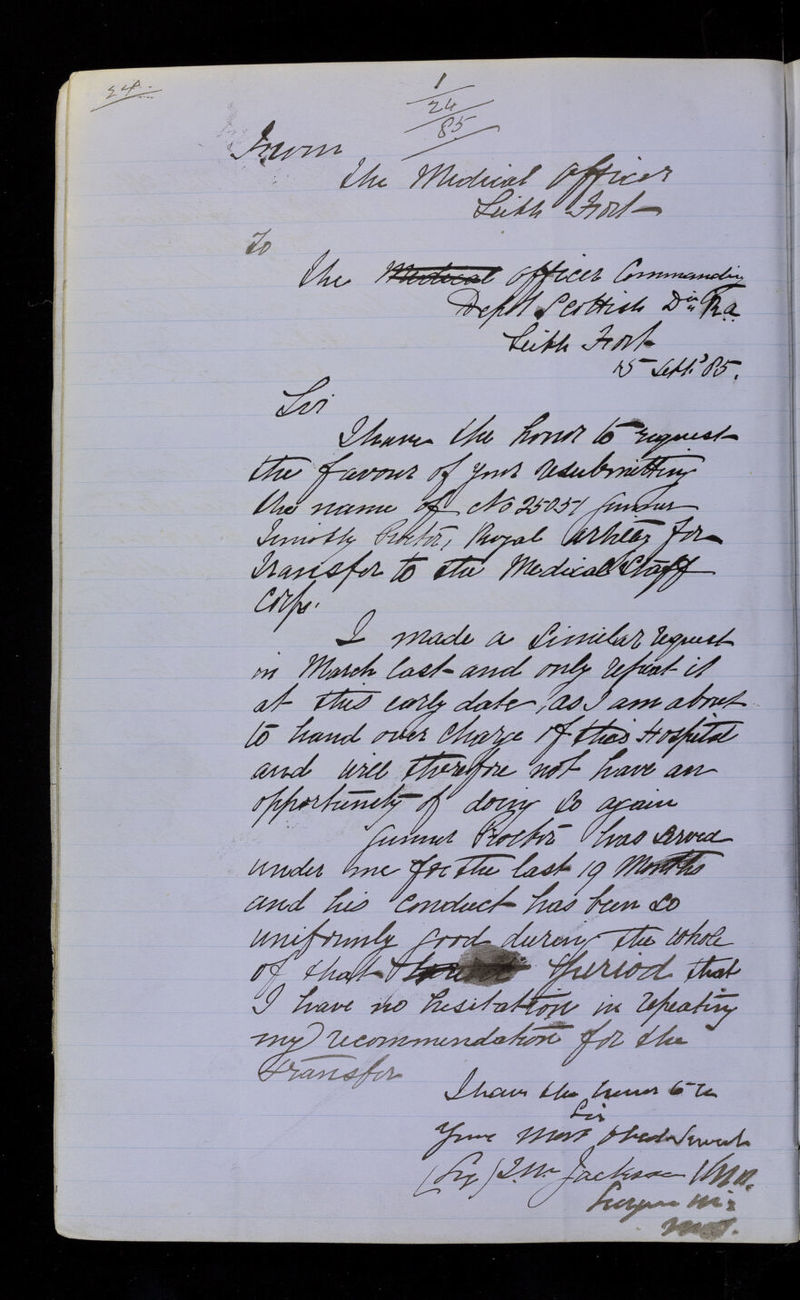 24.
1
24
85
From
The Medical Officer
Leith Fort
To
The Medical Officer Commanding
Depot Scottish Div R.A.
Leith Fort
15 Sept. 85.
Sir
I have the honor to request
the favour of your resubmitting
the name of No 25051 Gunner
Timothy Proctor, Royal Artillery for
transfer to the Medical Staff
Corps.
I made a similar request
in March last and only repeat it
at this early date, as I am about
to hand over charge of this Hospital
and will therefore not have an
opportunity of doing so again
Gunner Proctor has served
under me for the last 19 Months
and his conduct has been so
uniformly good during the whole
of that period that
I have no hesitation in repeating
my recommendation for the
transfer
I have the honor to be
Sir
Your most Obed. Servant
(Sig) Jackson
Surgeon